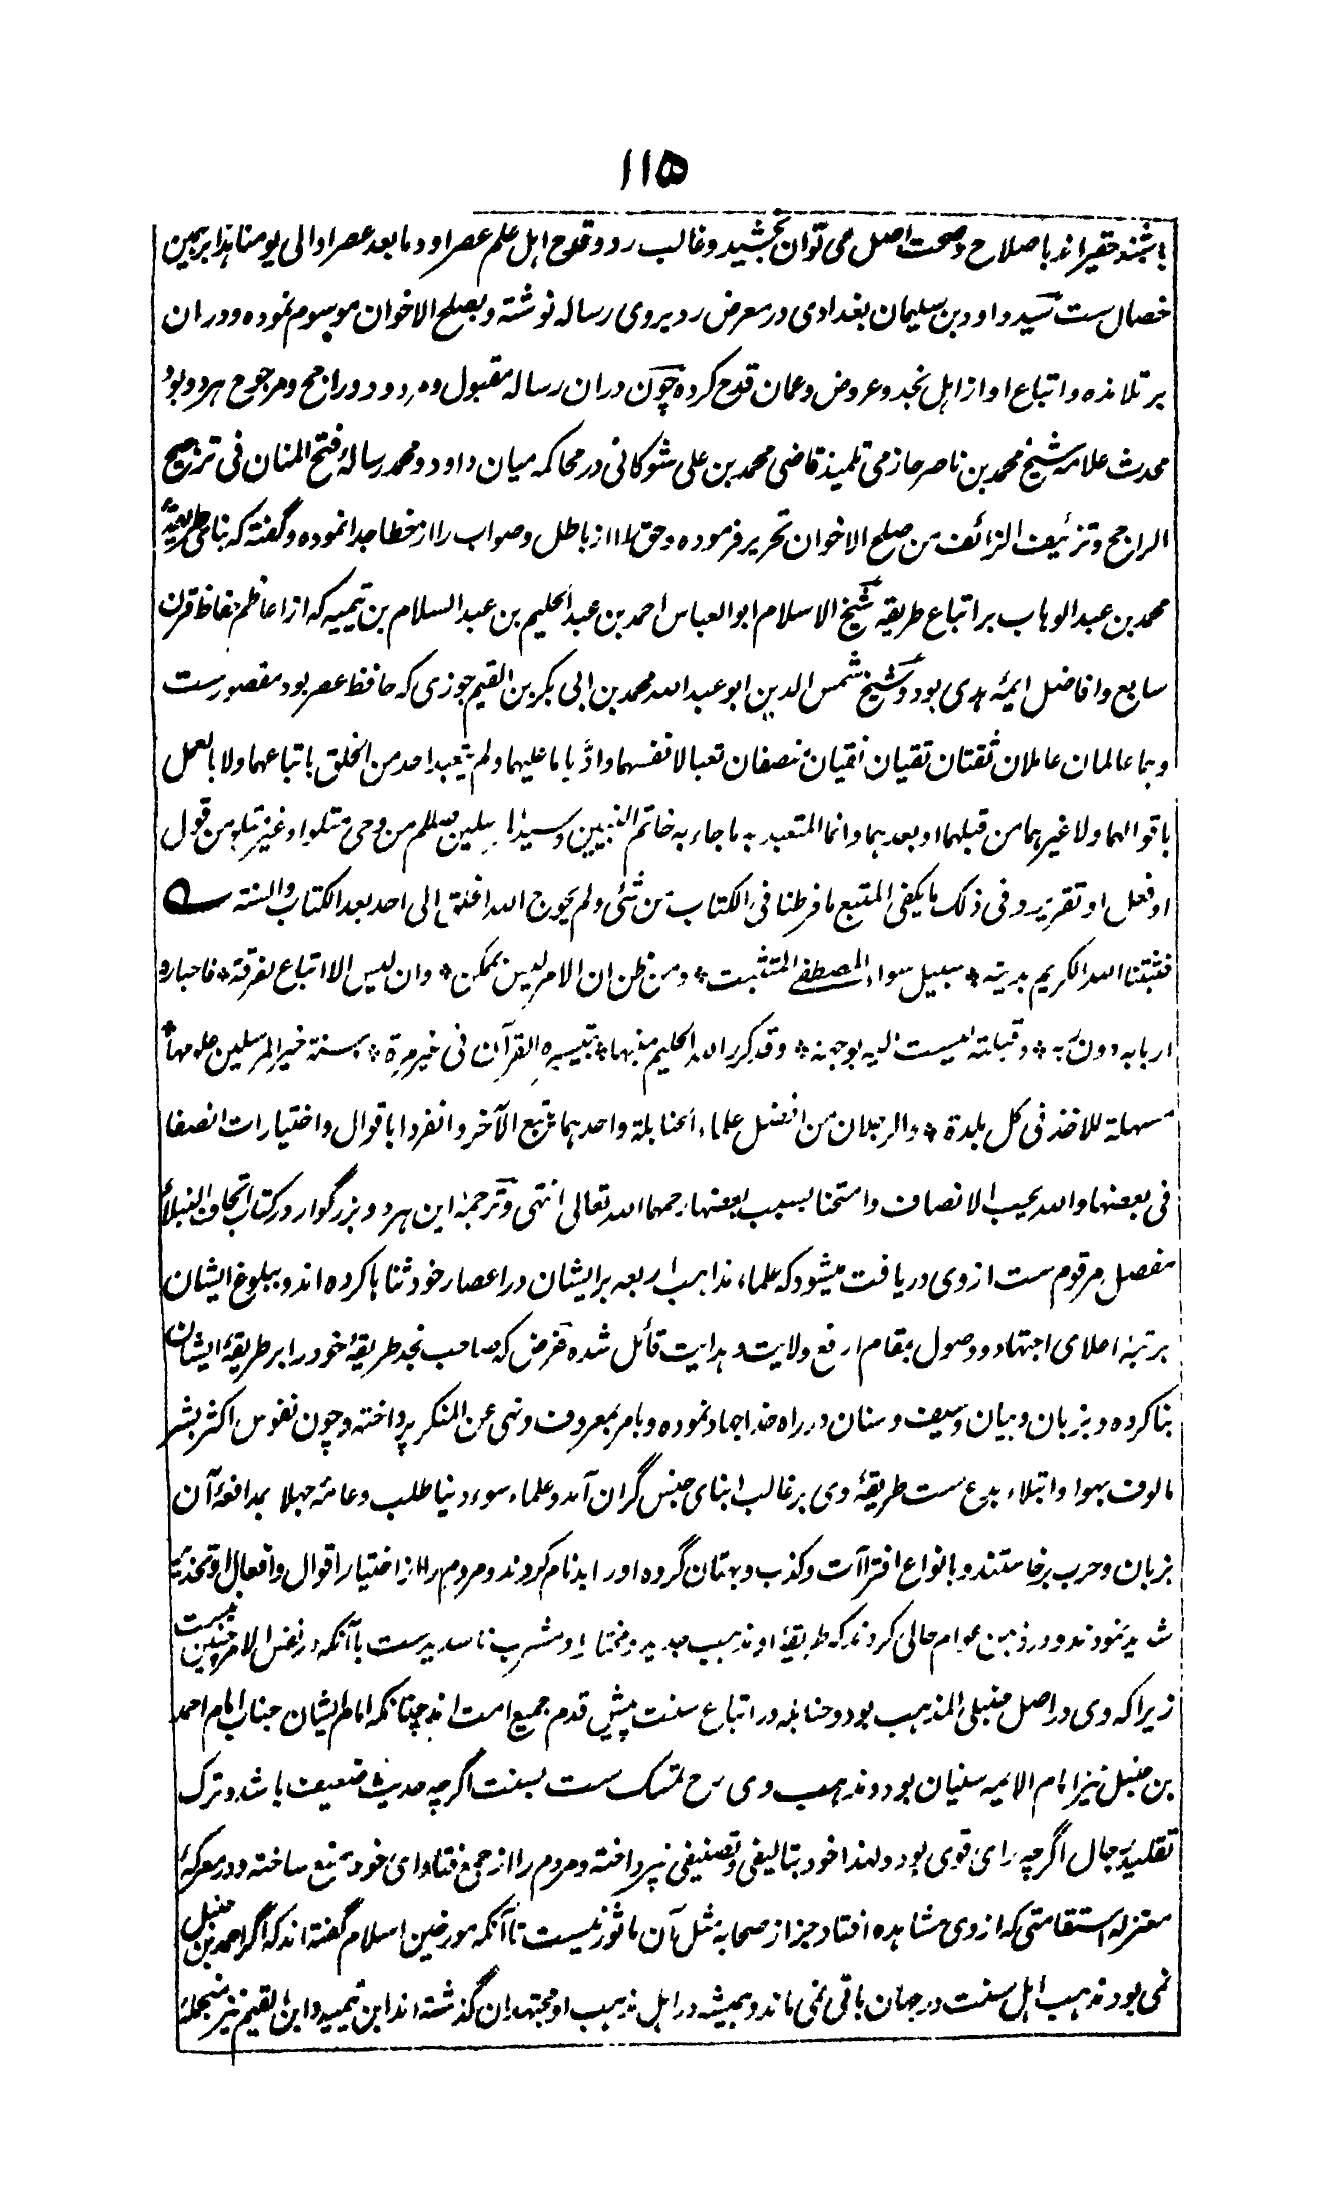 ۱۱۵
باشند و حقیر اند باصلاح و صحت اصل می توان بخشید و غالب رد و قدح اہل علم عصر او و ما بعد عصر او الی یومنا ہذا برہمین
خصال ست سید داود بن سلیمان بغدادی در معرض رد بروی رسالہ نوشتہ و بصلح الاخوان موسوم نمودہ و دران
بر تلامذہ و اتباع او از اہل نجد و عروض و عمان قدح کردہ چون دران رسالہ مقبول و مردود و راجح و مرجوح ہر دو بود
محدث علامہ شیخ محمد بن ناصر حازمی تلمیذ قاضی محمد بن علی شوکانی در محاکمہ میان داود و محمد رسالۂ فتح المنان فی ترجیح
الراجح و تزئیف الزائف من صلح الاخوان تحریر فرمودہ و حق را از باطل و صواب را از خطا جدا نمودہ و گفتہ کہ بنای طریقۂ
محمد بن عبد الوہاب بر اتباع طریقہ شیخ الاسلام ابو العباس احمد بن عبد الحلیم بن عبد السلام بن تیمیہ کہ از اعاظم حفاظ قرن
سابع و افاضل ایمۂ ہدی بود و شیخ شمس الدین ابو عبد اللہ محمد بن ابی بکر بن القیم جوزی کہ حافظ عصر بود مقصورست
و ہما عالمان عاملان ثقتان تقیان نقیان منصفان تعبا لانفسہما و ادّبا ما علیہما و لم یتعبد احد من الخلق باتباعہما ولا بالعمل
باقوالہما ولا غیرہما من قبلہما او بعدہما و انما المتعبد بہ ما جاء بہ خاتم النبیین و سید المرسلین صللم من وحی متلو او غیر متلو من قول
او فعل او تقریر و فی ذلک ما یکفی المتبع ما فرطنا فی الکتاب من شئ ولم یحوج اللہ الخلق الی احد بعد الکتاب والسنتہ ے
فثبتنا اللہ الکریم بدینہ * سبیل سواء المصطفی المتثبت * ومن ظن ان الامر لیس بممکن * وان لیس الا اتباع لفرقۃ * فاحبارہ
اربابہ دون ربہ * وقبلتہ لیست الیہ بوجہۃ * وقد کرر اللہ الحکیم منبہا * بتیسیرہ القرآن فی غیر مرۃ * بسنۃ خیر المرسلین علومہا *
مسہلۃ للاخذ فی کل بلدۃ * والرجلان من افضل علماء الحنابلۃ واحدہما یتبع الآخر وانفردا باقوال واختیارات انصفا
فی بعضہا واللہ یحب الانصاف وامتحنا بسبب بعضہا رحمہما اللہ تعالی انتہی و ترجمۂ این ہر دو بزرگوار در کتاب اتحاف النبلاء
مفصل مرقوم ست ازوی دریافت میشود کہ علماء مذاہب اربعہ بر ایشان در اعصار خود ثنا ہا کردہ اند و ببلوغ ایشان
برتبۂ اعلای اجتہاد و وصول بمقام ارفع ولایت و ہدایت قائل شدہ غرض کہ صاحب نجد طریقۂ خود را بر طریقۂ ایشان
بنا کردہ و بزبان و بیان و سیف و سنان در راہ خدا جہاد نمودہ و بامر بمعروف و نہی عن المنکر پرداختہ و چون نفوس اکثر بشر
مالوف بہوا و ابتلاء بدع ست طریقۂ وی بر غالب ابنای جنس گران آمد و علماء سوء دنیا طلب و عامہ جہلا بمدافعۂ آن
بزبان و حرب برخاستند و بانواع افتراآت و کذب و بہتان گروہ او را بدنام کردند و مردم را از اختیار اقوال و افعال او تحذیر
شدید نمودند و در ذہن عوام حالی کردند کہ طریقۂ او مذہب جدید و مختار او مشرب ناسدید ست باآنکہ در نفس الامر چنین نیست
زیرا کہ وی در اصل حنبلی المذہب بود و حنابلہ در اتباع سنت پیش قدم جمیع امت اند چنانکہ امام ایشان جناب امام احمد
بن حنبل نیز امام الایمہ سنیان بود و مذہب وی سرح تمسک ست بسنت اگرچہ حدیث ضعیف باشد و ترک
تقلید رجال اگرچہ رای قوی بود و لہذا خود بتالیفی و تصنیفی نپرداختہ و مردم را از جمع فتاوای خود منع ساختہ و در معرکۂ
معتزلہ استقامتی کہ ازوی مشاہدہ افتاد جز از صحابہ مثل آن ماثور نیست تا آنکہ مورخین اسلام گفتہ اند کہ اگر احمد بن حنبل
نمی بود مذہب اہل سنت در جہان باقی نمی ماند و ہمیشہ در اہل مذہب او مجتہدان گذشتہ اند ابن تیمیہ و ابن القیم نیز منجملۂ